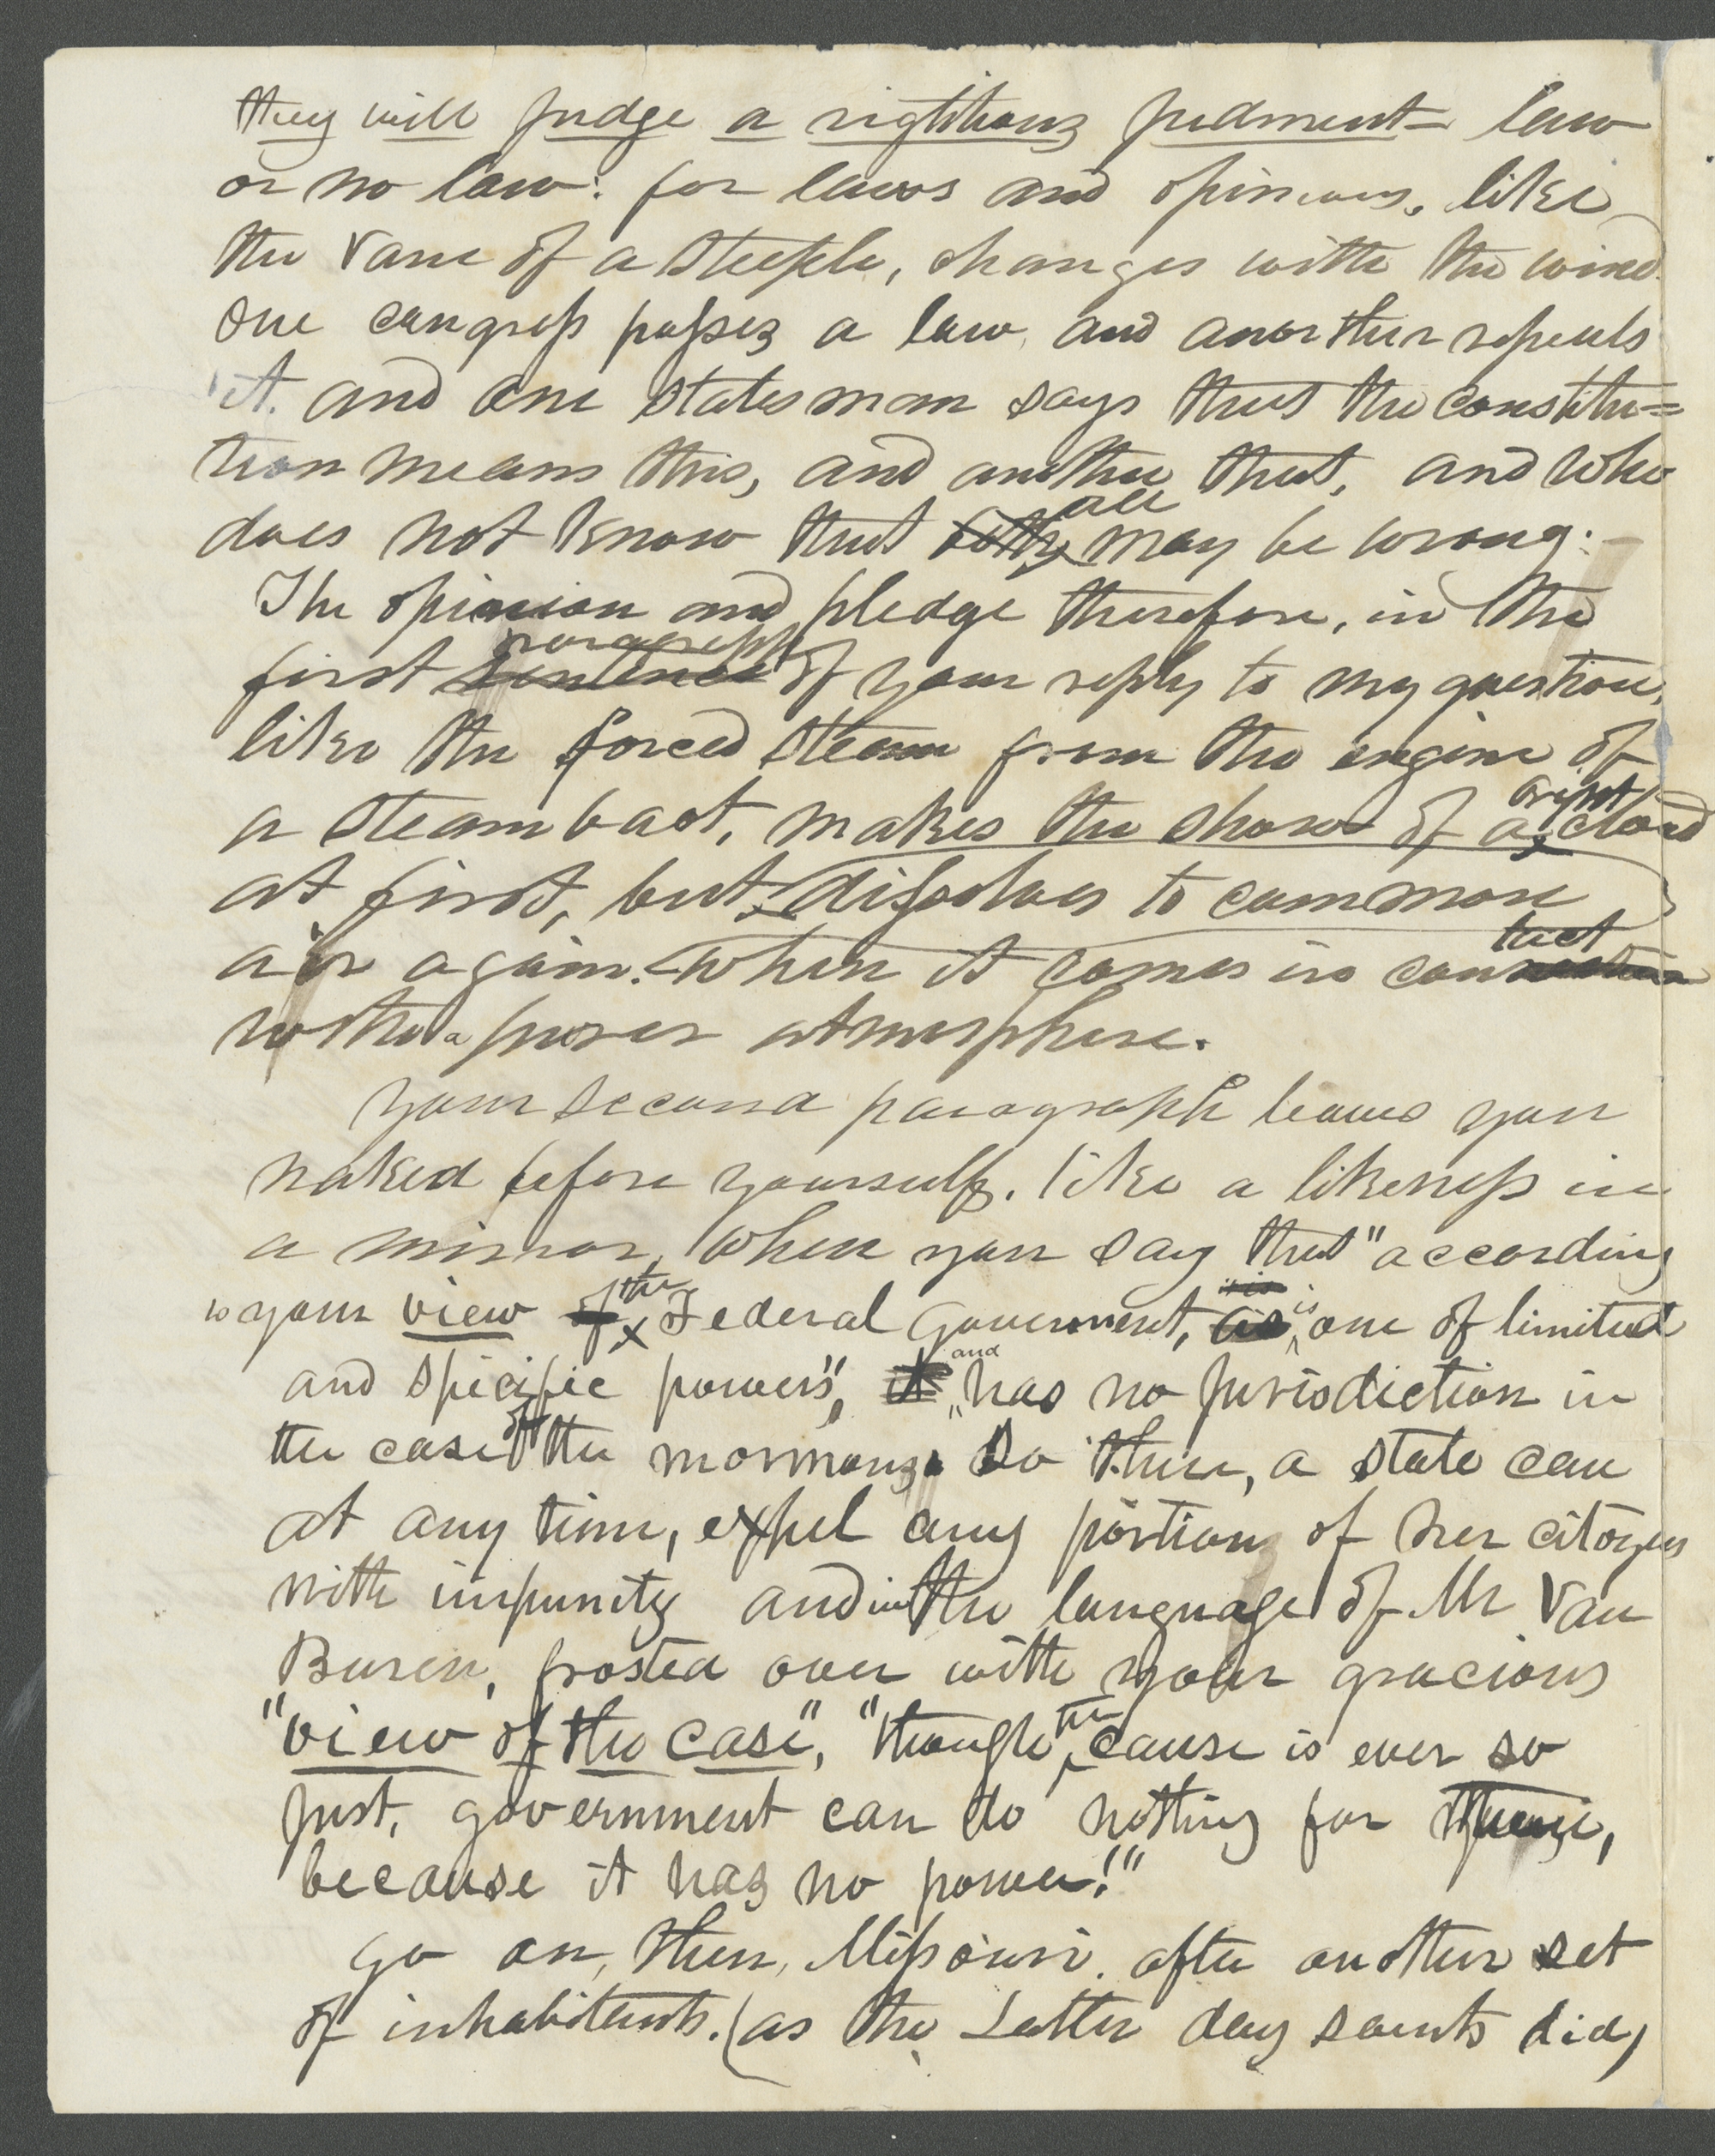 they will judge a rigtitious judment= law
or no law: for laws and opinions, like
the vane of a steeple, changes with the wind.
One congress passes a law, and another repeals
it. and one statesman says that the constitu=
tion means this, and another that, and who
does not know that both all may be wrong:
The opinion and pledge therefore, in the
first sentence paragraph of your reply to my question,
like the forced steam from the engine of
a steam boat, makes the show of a bright cloud
at first, but dissolves to common
air again. when it comes in con tact
with a purer atmosphere.
Your second paragraph leaves you
naked before yourself, like a likeness in
a mirror, when you say that "according
to your view of the Federal Government, is one of limited
and specific powers", it and "has no jurisdiction in
the case of the mormons. So then, a state can
at any time, expel any portion of her citizens
with impunity and in the language of Mr Van
Buren, frosted over with your gracious
"view of the case", "though the cause is ever so
just, government can do nothing for them,
because it has no power!"
Go on, then, Missouri. after another set
of inhabitants. (as the Latter day saints did)